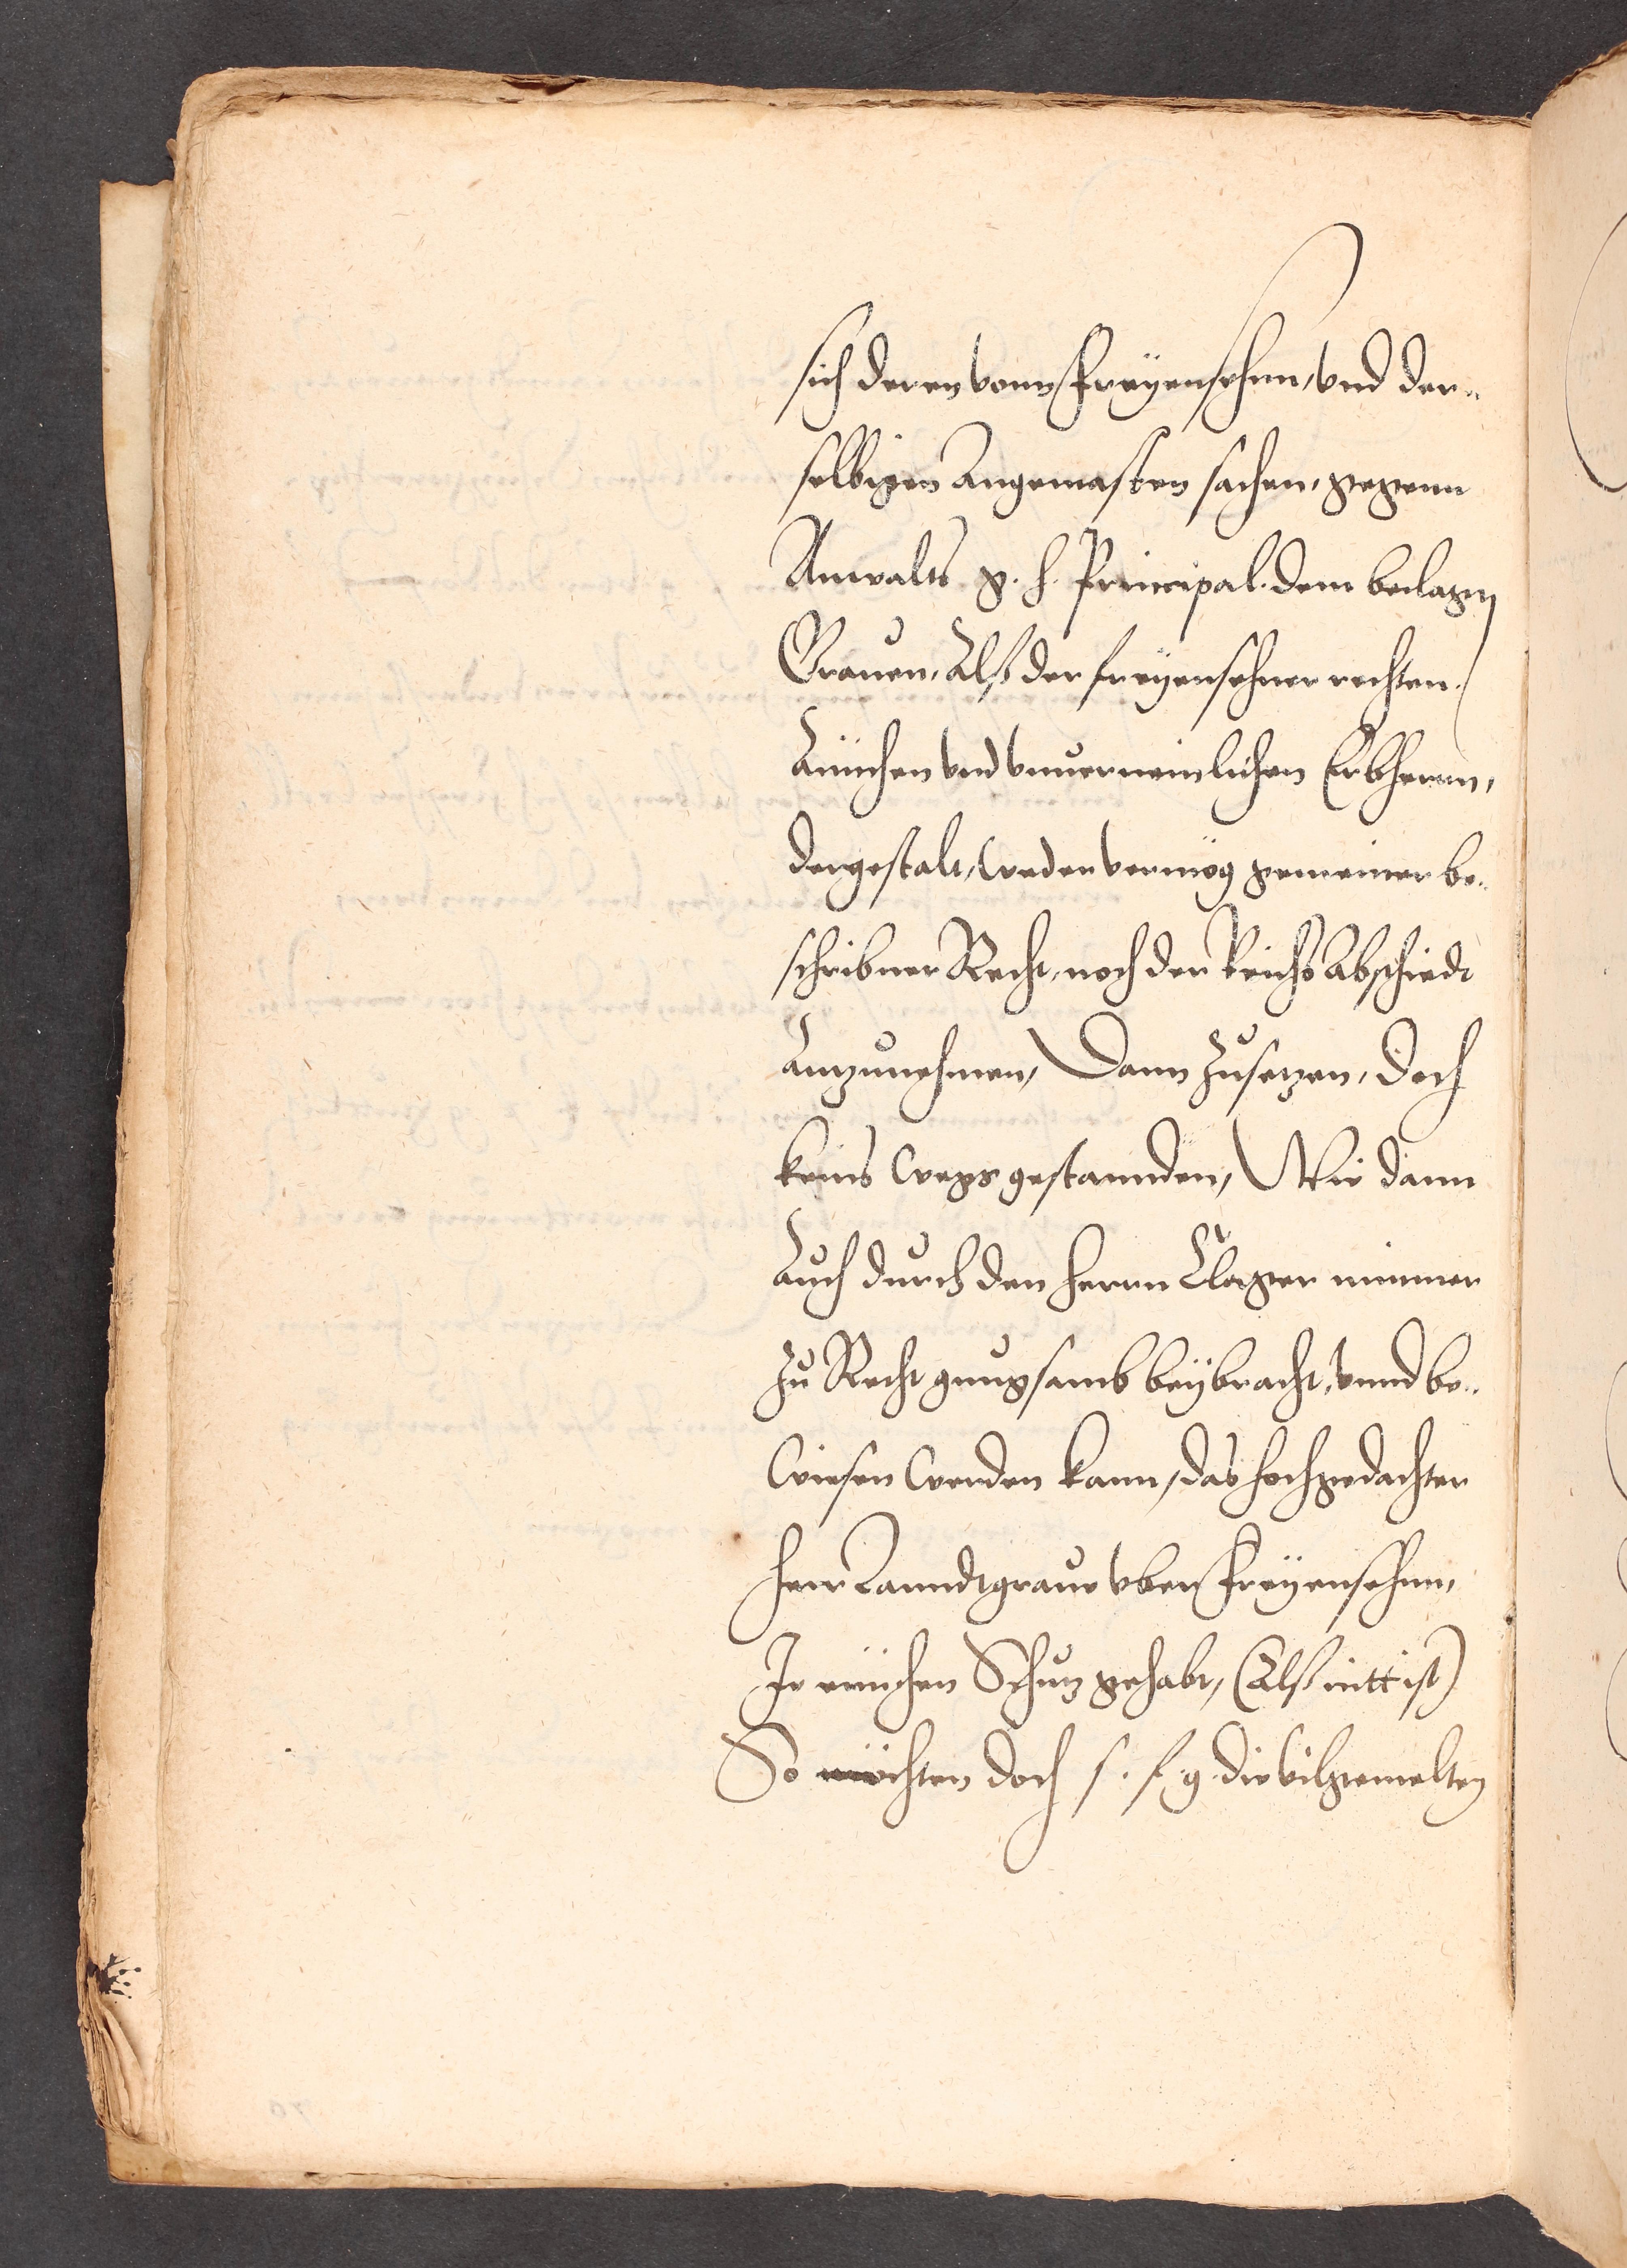 sich deren vonn Freyensehnn, vnd der-
selbigen angemasten sachen, gegenn
Anwalts g. h. Principal. dem beclagtenn
Grauen, Alß der freyensehner rechten.
Ainichen vnd vnuerneinlichen Erbherrn,
dergestalt, weder vermög gemeiner be-
schribner Recht, noch der Reichs Abschiedt
Anzunehmen, Dann zusetzen, doch
keins wegs gestannden, Wie dann
Auch durch den herrn Cläger nimmer
zu Recht gnugsamb beybracht, vnnd be-
wiesen werden kann, das hochgedachter
herr Lanndtgraue vber Freyensehnn,
Je einichen Schutz gehabt, (Alß nitt ist)
So möchten doch s. f. g. die vilgemelten